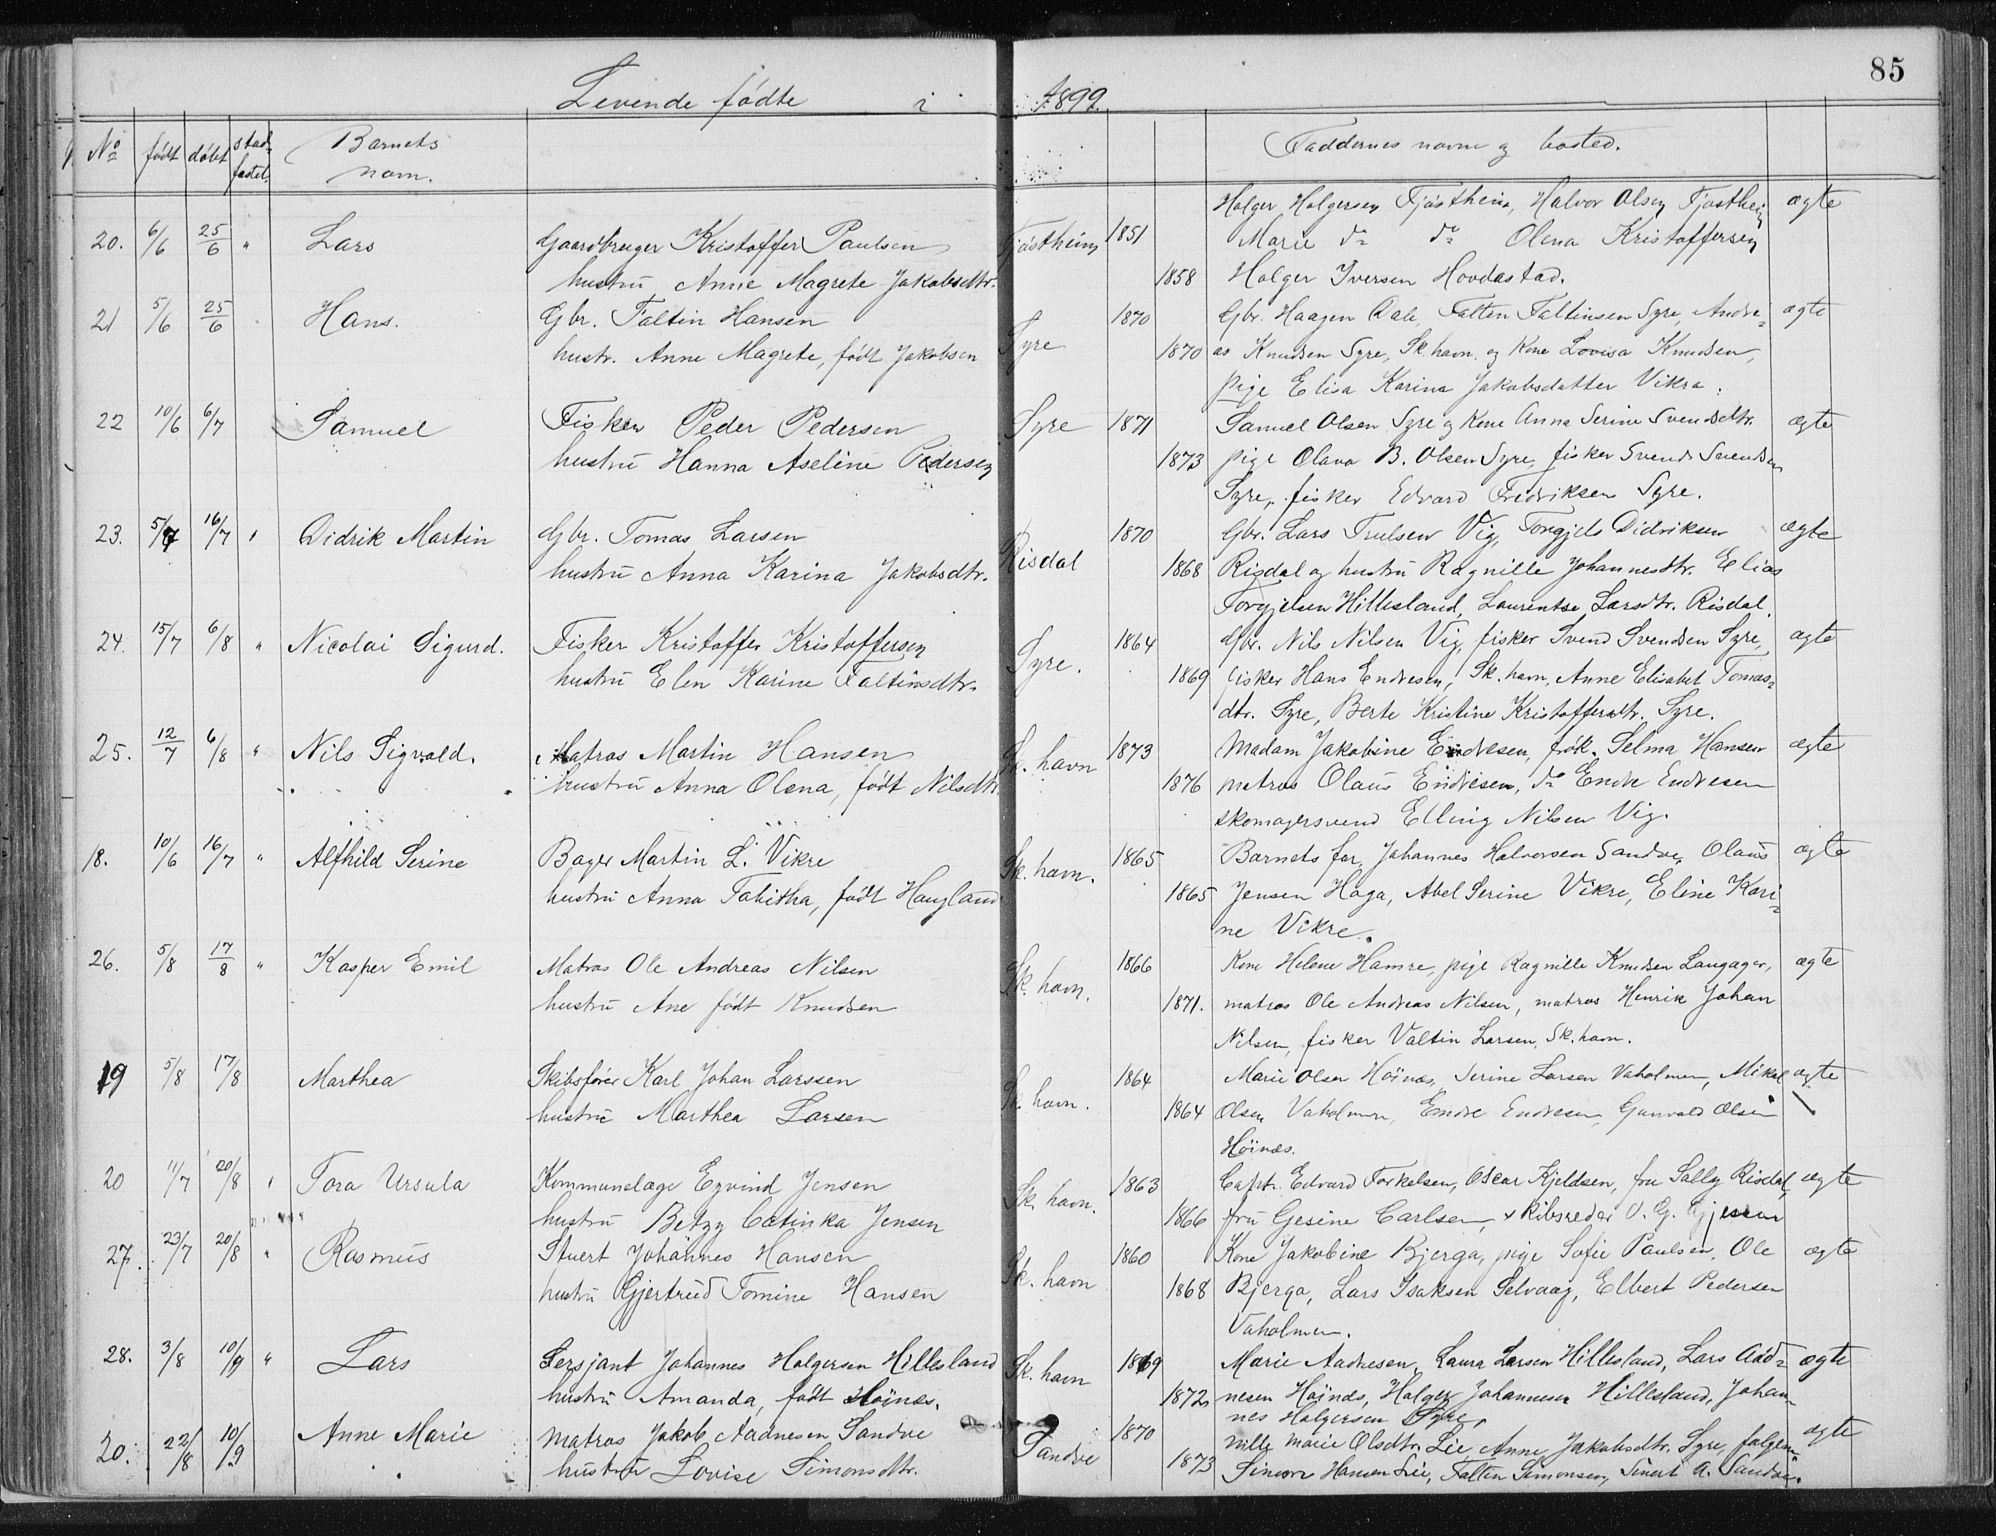 85
Levende fødte i 1899.
No født døbt stadfæstet. Barnets navn. Faddernes navne og bosted.
20. 6/6 25/6 " Lars Gaardbruger Kristoffer Paulsen Fjæstheim 1851 Holger Holgersen Fjøstheim, Halvor Olsen Fjøstheim ægte
hustru Anne Magrete Jakobsdtr. Marie do do Olena Kristoffersen
1858 Holger Iversen Hovdastad.
21 5/6 25/6 Hans. Gbr. Faltin Hansen Syre 1870 Gbr. Haagen Dale, Falten Faltinsen Syre, Andre= ægte
hustr. Anne Magrete, født Jakobsen 1870 as Knudsen Syre, Sk.havn. og Kone Lovisa Knudsen,
pige Elisa Karina Jakobsdatter Vikra.
22 10/6 6/7 Samuel Fisker Peder Pedersen Syre 1871 Samuel Olsen Syre og Kone Anna Serine Svendsdtr. ægte
hustru Hanna Aseline Pedersen 1873 pige Olava B. Olsen Syre, fisker Svend Svendsen
Syre, fisker Edvard Fredriksen Syre.
23. 5/7 16/7 " Didrik Martin Gbr. Tomas Larsen Risdal 1870 Gbr. Lars Trulsen Vig, Torgjels Didriksen ægte
hustru Anna Karina Jakobsdtr. 1868 Risdal og hustru Ragnille Johannesdtr. Elias
Torgjelsen Hillesland, Laurentse Larsdtr. Risdal.
24. 15/7 6/8 " Nicolai Sigurd. Fisker Kristoffer Kristoffersen Syre. 1864 Gbr. Nils Nilsen Vig, fisker Svend Svendsen Syre, ægte
hustru Elen Karine Faltinsdtr. 1869 fisker Hans Endresen, Sk.havn, Anne Elisabet Tomas=
dtr. Syre, Berte Kristine Kristoffersdtr. Syre.
25. 12/7 6/8 " Nils Sigvald. Matros Martin Hansen Sk. havn 1873 Madam Jakobine Endresen, frøk. Selma Hansen ægte
hustru Anna Olena, født Nilsdtr. 1876 matros Olaus Endresen, do Endre Endresen
skomagersvend Elling Nilsen Vig.
18. 10/6 16/7 " Alfhild Serine Bager Martin L. Vikre Sk. havn. 1865 Barnets far, Johannes Halvorsen Sandve, Olaus ægte
hustru Anna Tabitha, født Haugland 1865 Jensen Haga, Abel Serine Vikre, Eline Kari=
ne Vikre.
26. 5/8 17/8 " Kasper Emil Matros Ole Andreas Nilsen Sk. havn. 1866 Kone Helene Hamre, pige Ragnille Knudsen Langager, ægte
hustru Ane født Knudsen 1871. matros Ole Andreas Nilsen, matros Henrik Johan
Nilsen, fisker Valtin Larsen, Sk.havn.
19 5/8 17/8 Marthea Skibsfører Karl Johan Larssen Sk. havn. 1864 Marie Olsen Høinæs, Serine Larsen Vaholmen, Mikal ægte
hustru Marthea Larsen 1864 Olsen Vaholmen, Endre Endresen, Gunvald Olsen
Høinæs.
20 11/7 20/8 " Tora Ursula Kommunelæge Eyvind Jensen Sk. havn. 1863 Capt. Edvard Torkelsen, Oskar Kjeldsen, fru Sally Risdal, ægte
hustru Betzy Catinka Jensen 1866 fru Gesine Carlsen, skibsreder O. G. Gjessen
27. 23/7 20/8 " Rasmus Stuert Johannes Hansen Sk. havn 1860 Kone Jakobine Bjerga, pige Sofie Paulsen, Ole ægte
hustru Gjertrud Tomine Hansen 1868 Bjerga, Lars Isaksen Selvaag, Elbert Pedersen
Vaholmen.
28. 3/8 10/9 " Lars Sersjant Johannes Holgersen Hillesland Sk. havn 1869 Marie Aadnesen, Laura Larsen Hillesland, Lars Aad= ægte
hustru Amanda, født Høinæs. 1872 nesen Høinæs, Holger Johannesen Hillesland, Johan=
nes Holgersen Syre.
20. 22/8 10/9 Anne Marie Matros Jakob Aadnesen Sandve Sandve 1870 Nille Marie Olsdtr. Lie Anne Jakobsdtr. Syre, ægte
hustru Lovise Simonsdtr. 1873 Simon Hansen Lie, Falten Simonsen, Sivert A. Sandve.